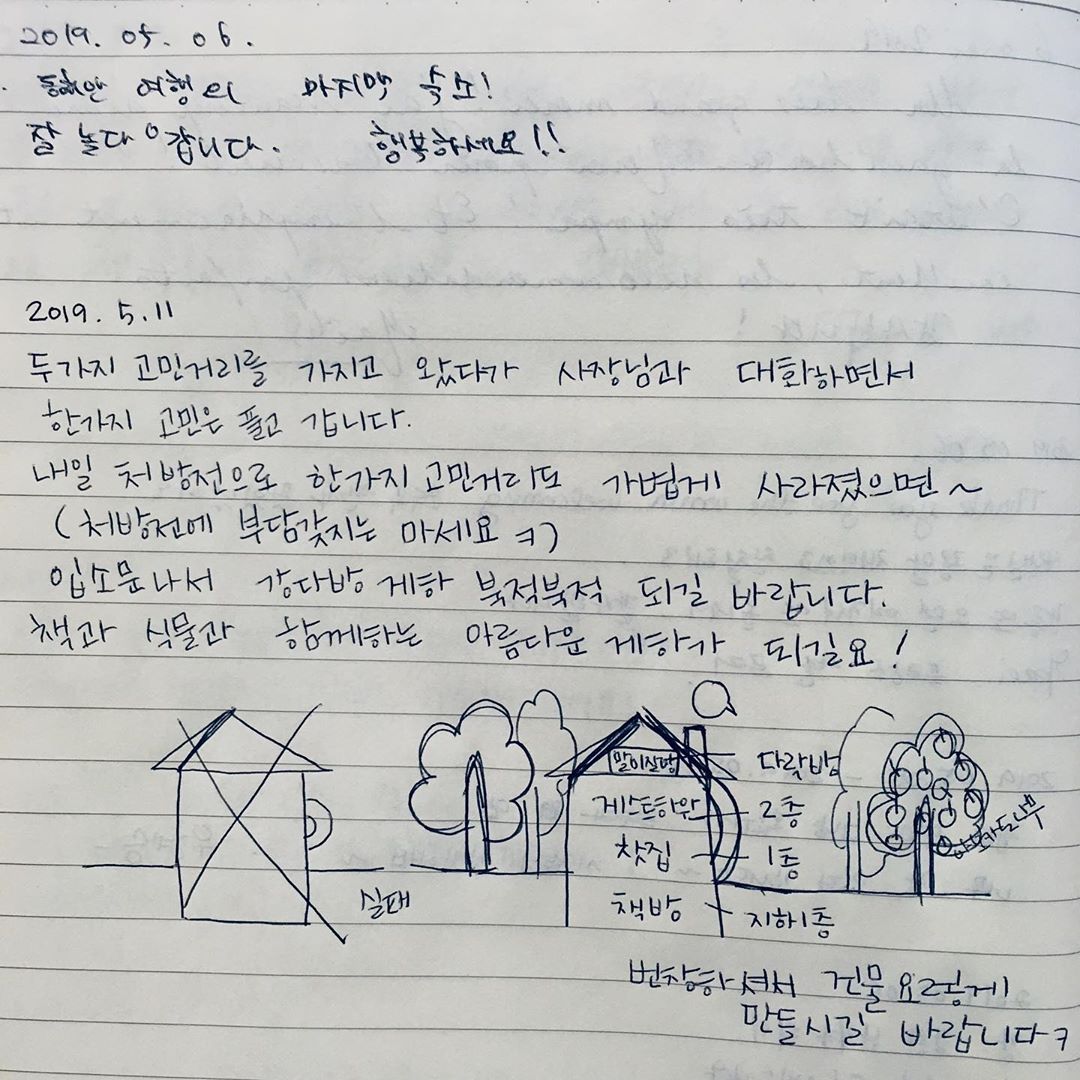 2019. 05. 06.
동해안 여행의 마지막 숙소!
잘 놀다 갑니다. 행복하세요!!
2019. 5. 11
두가지 고민거리를 가지고 왔다가 사장님과 대화하면서
한가지 고민은 풀고 갑니다.
내일 처방전으로 한가지 고민거리도 가볍게 사라졌으면~
(처방전에 부담갖지는 마세요ㅋ)
입소문나서 강다방 게하 북적북적 되길 바랍니다.
책과 식물과 함께하는 아름다운 게하가 되길요!
다락방
게스트하우스 2층
찻집 1층
책방 지하1층
실패
아보카도나무
번창하셔서 건물 요렇게
만들시길 바랍니다ㅋ